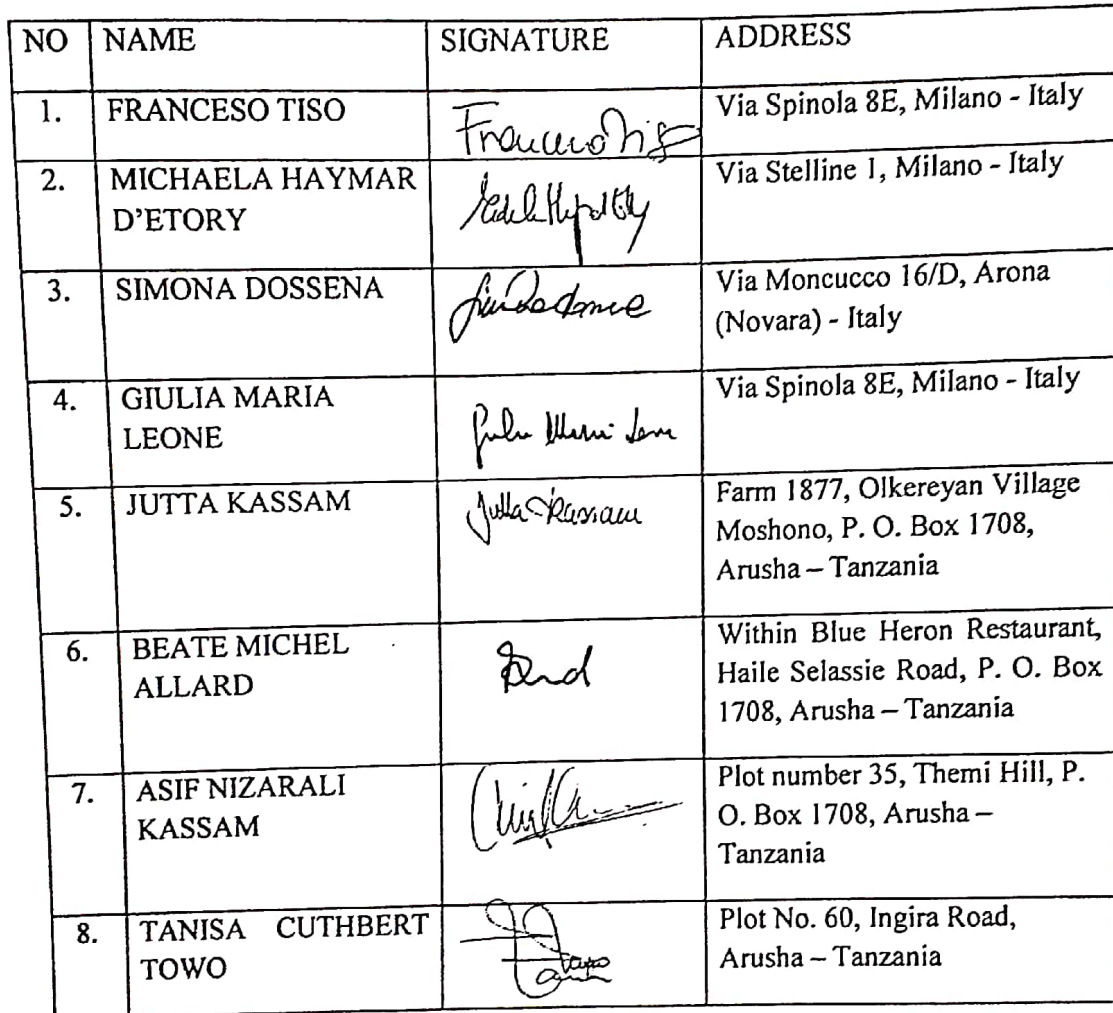 NO NAME SIGNATURE ADDRESS
1. FRANCESO TISO Francesco Tiso Via Spinola 8E, Milano - Italy
2. MICHAELA HAYMAR Via Stelline 1, Milano - Italy
D'ETORY
3. SIMONA DOSSENA Via Moncucco 16/D, Arona
(Novara) - Italy
4. GIULIA MARIA Via Spinola 8E, Milano - Italy
LEONE Giulia Maria Leone
5. JUTTA KASSAM Jutta Kassam Farm 1877, Olkereyan Village
Moshono, P. O. Box 1708,
Arusha – Tanzania
6. BEATE MICHEL Within Blue Heron Restaurant,
ALLARD Haile Selassie Road, P. O. Box
1708, Arusha – Tanzania
7. ASIF NIZARALI Plot number 35, Themi Hill, P.
KASSAM O. Box 1708, Arusha –
Tanzania
8. TANISA CUTHBERT Plot No. 60, Ingira Road,
TOWO Arusha – Tanzania